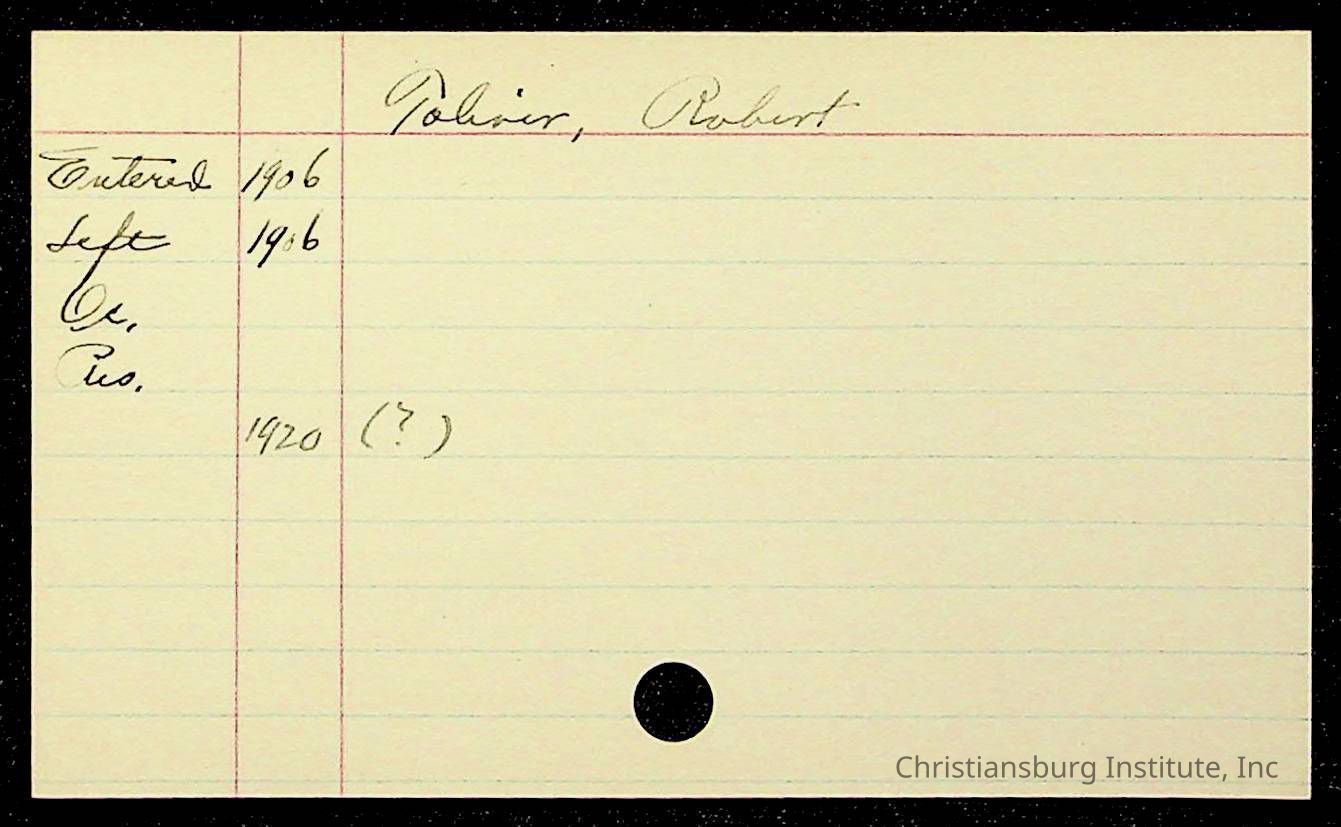 Toliver, Robert
Entered 1906
Left 1906
Oc.
Res.
1920 (?)
Christiansburg Institute, Inc